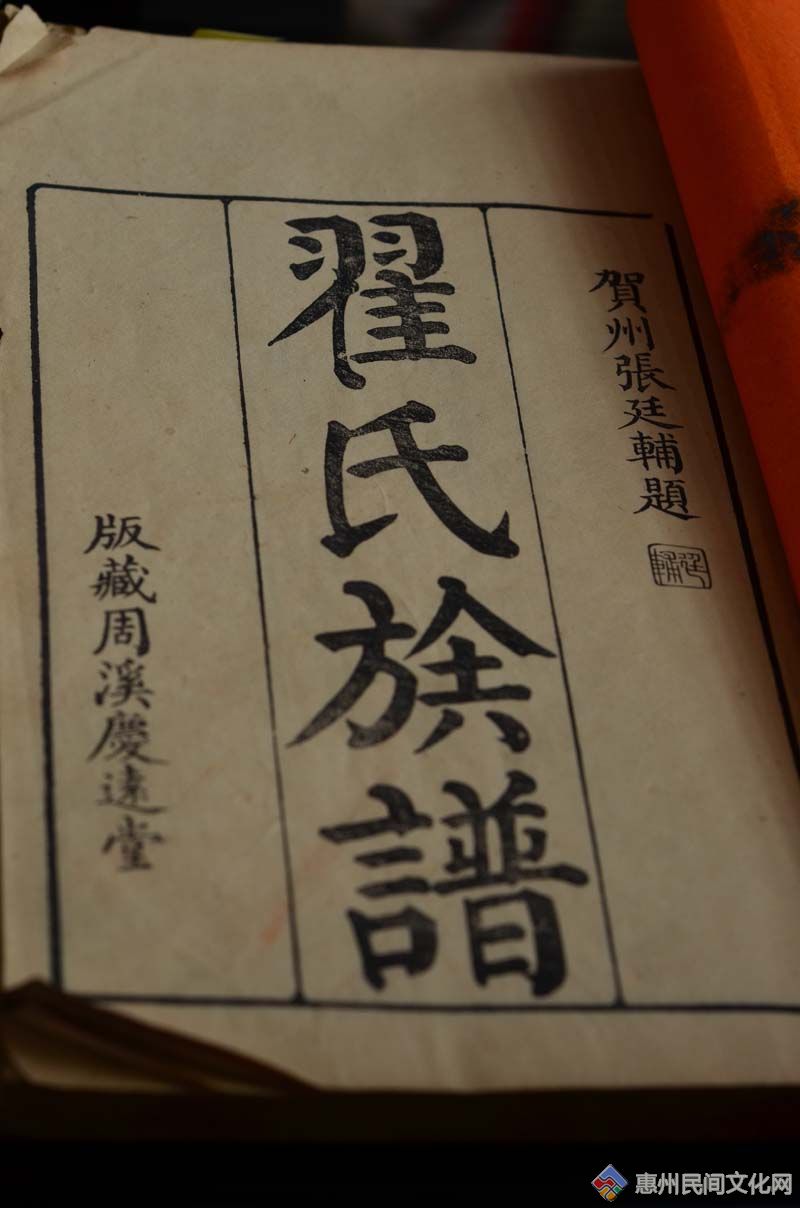 賀州張廷輔題
廷輔
翟氏族譜
版藏周溪慶遠堂
惠州民间文化网